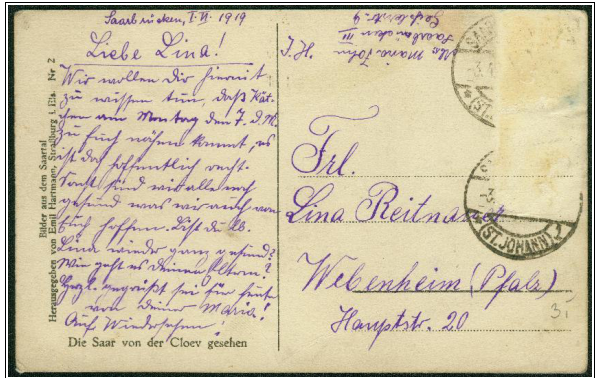 Saarbrücken, 1. VI. 1919
Liebe Lina!
Wir wollen Dir hiermit
zu wissen tun, daß Kät-
chen am Montag den 7. d. M.
zu Euch nähen kommt, es
ist das hoffentlich recht.
Sonst sind wir alle noch
gesund was wir auch von
Euch hoffen. Bist du lb.
Lina wieder ganz gesund?
Wie geht es deinen Eltern?
Herzl. gegrüßt sei für heute
von deiner Maria!
Auf Wiedersehen!
Bilder aus dem Saartal Nr 2
Herausgegeben von Emil Hartmann, Straßburg i. Els.
Die Saar von der Cloev gesehen
Maria
Saarbrücken III
Frl.
Lina
Webenheim (Pfalz)
Hauptstr. 20
(ST. JOHANN) 1
3.-